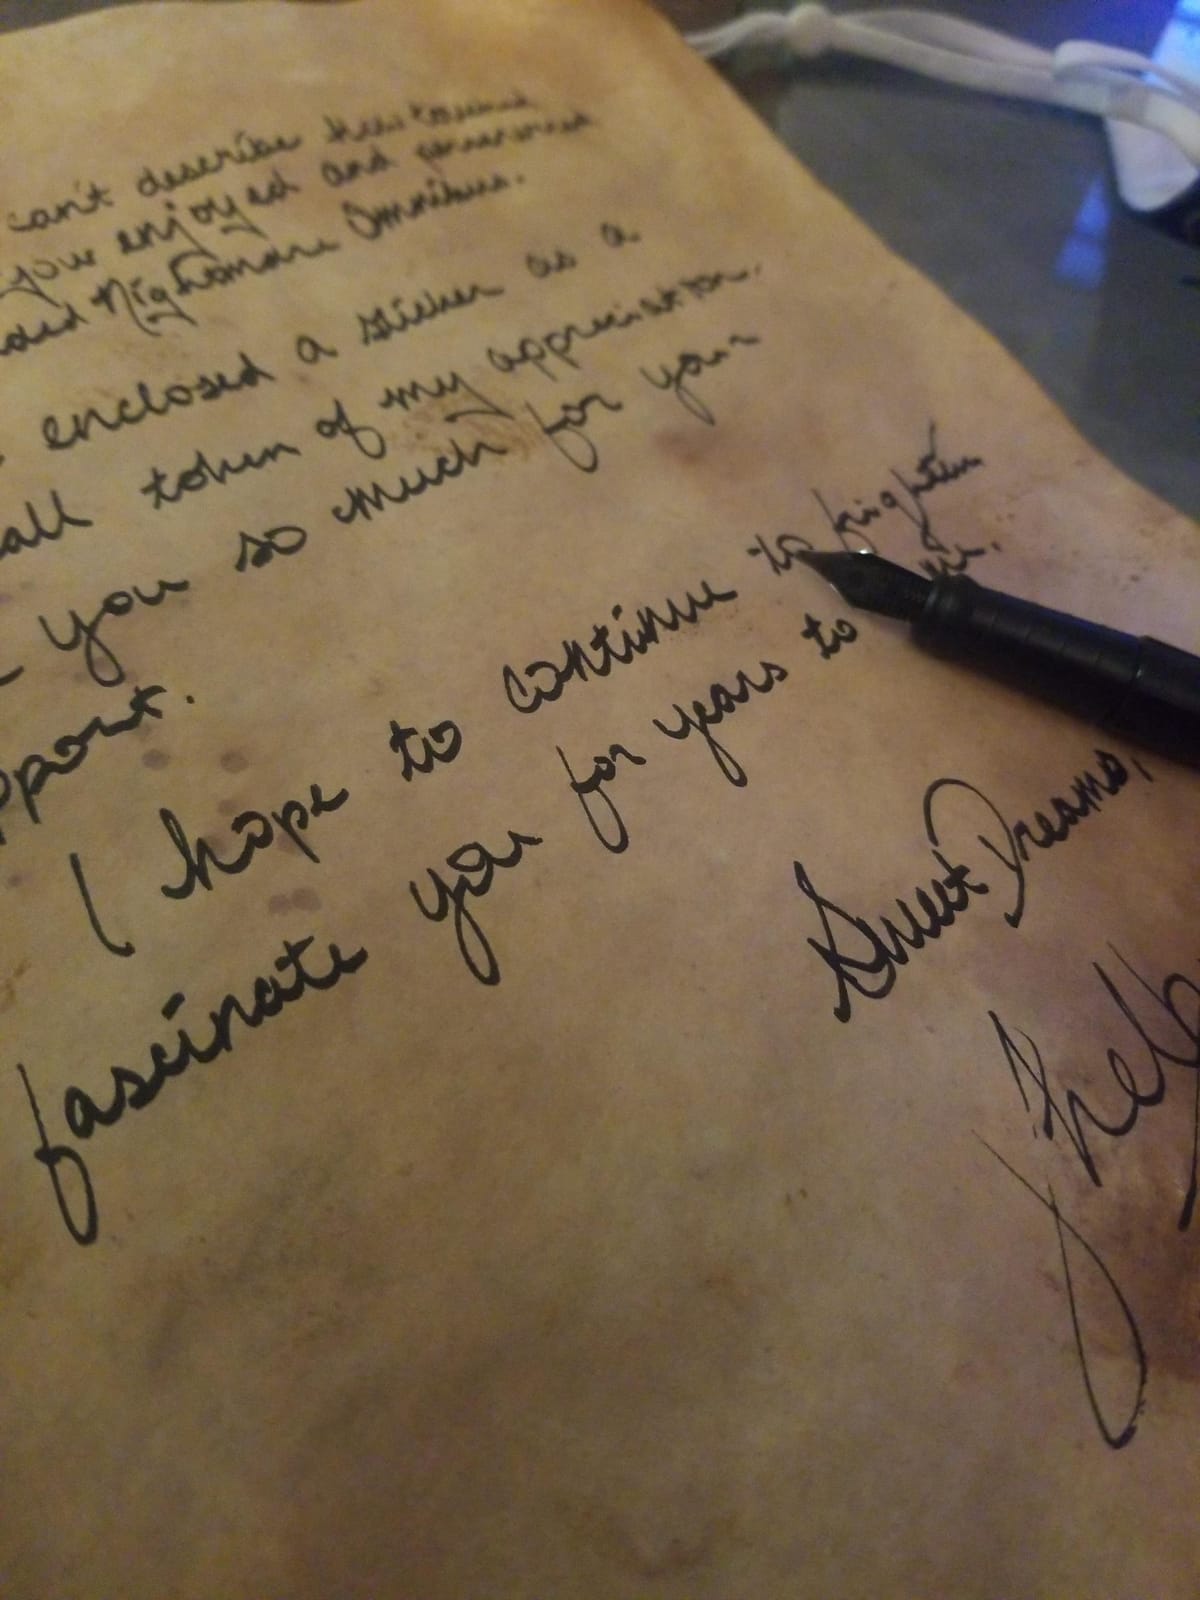 can't describe how
you enjoyed and
Nightmare Omnibus.
enclosed a sticker as a
all token of my appreciation.
you so much for your
pport.
I hope to continue to frighten
fascinate you for years to
Sweet Dreams,